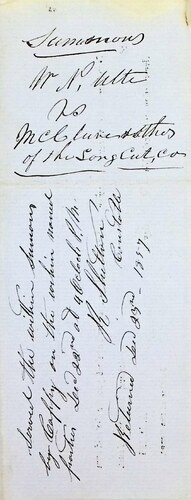 Summons
W N. Utte
vs
McClure & others
of the Long Cut, Co
Served the within Summons
by Coppy on the within named
parties Decr 22nd at 4 Oclock P.M.
Constable
Returned Decr 23rd 1857